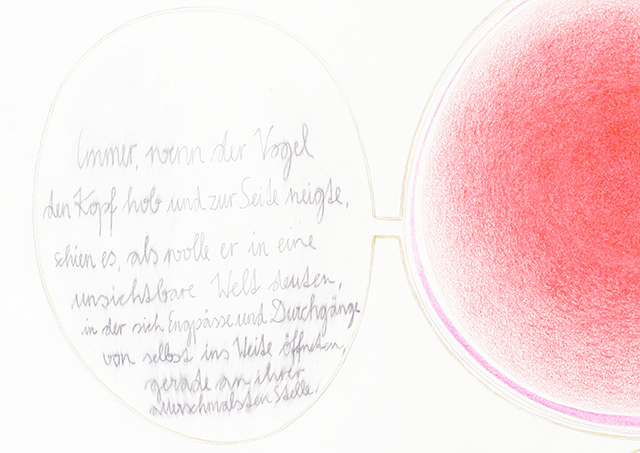 Immer, wenn der Vogel
den Kopf hob und zur Seite neigte,
schien es, als wolle er in eine
unsichtbare Welt deuten,
in der sich Engpässe und Durchgänge
von selbst ins Weite öffneten,
gerade an ihrer
allerschmalsten Stelle.